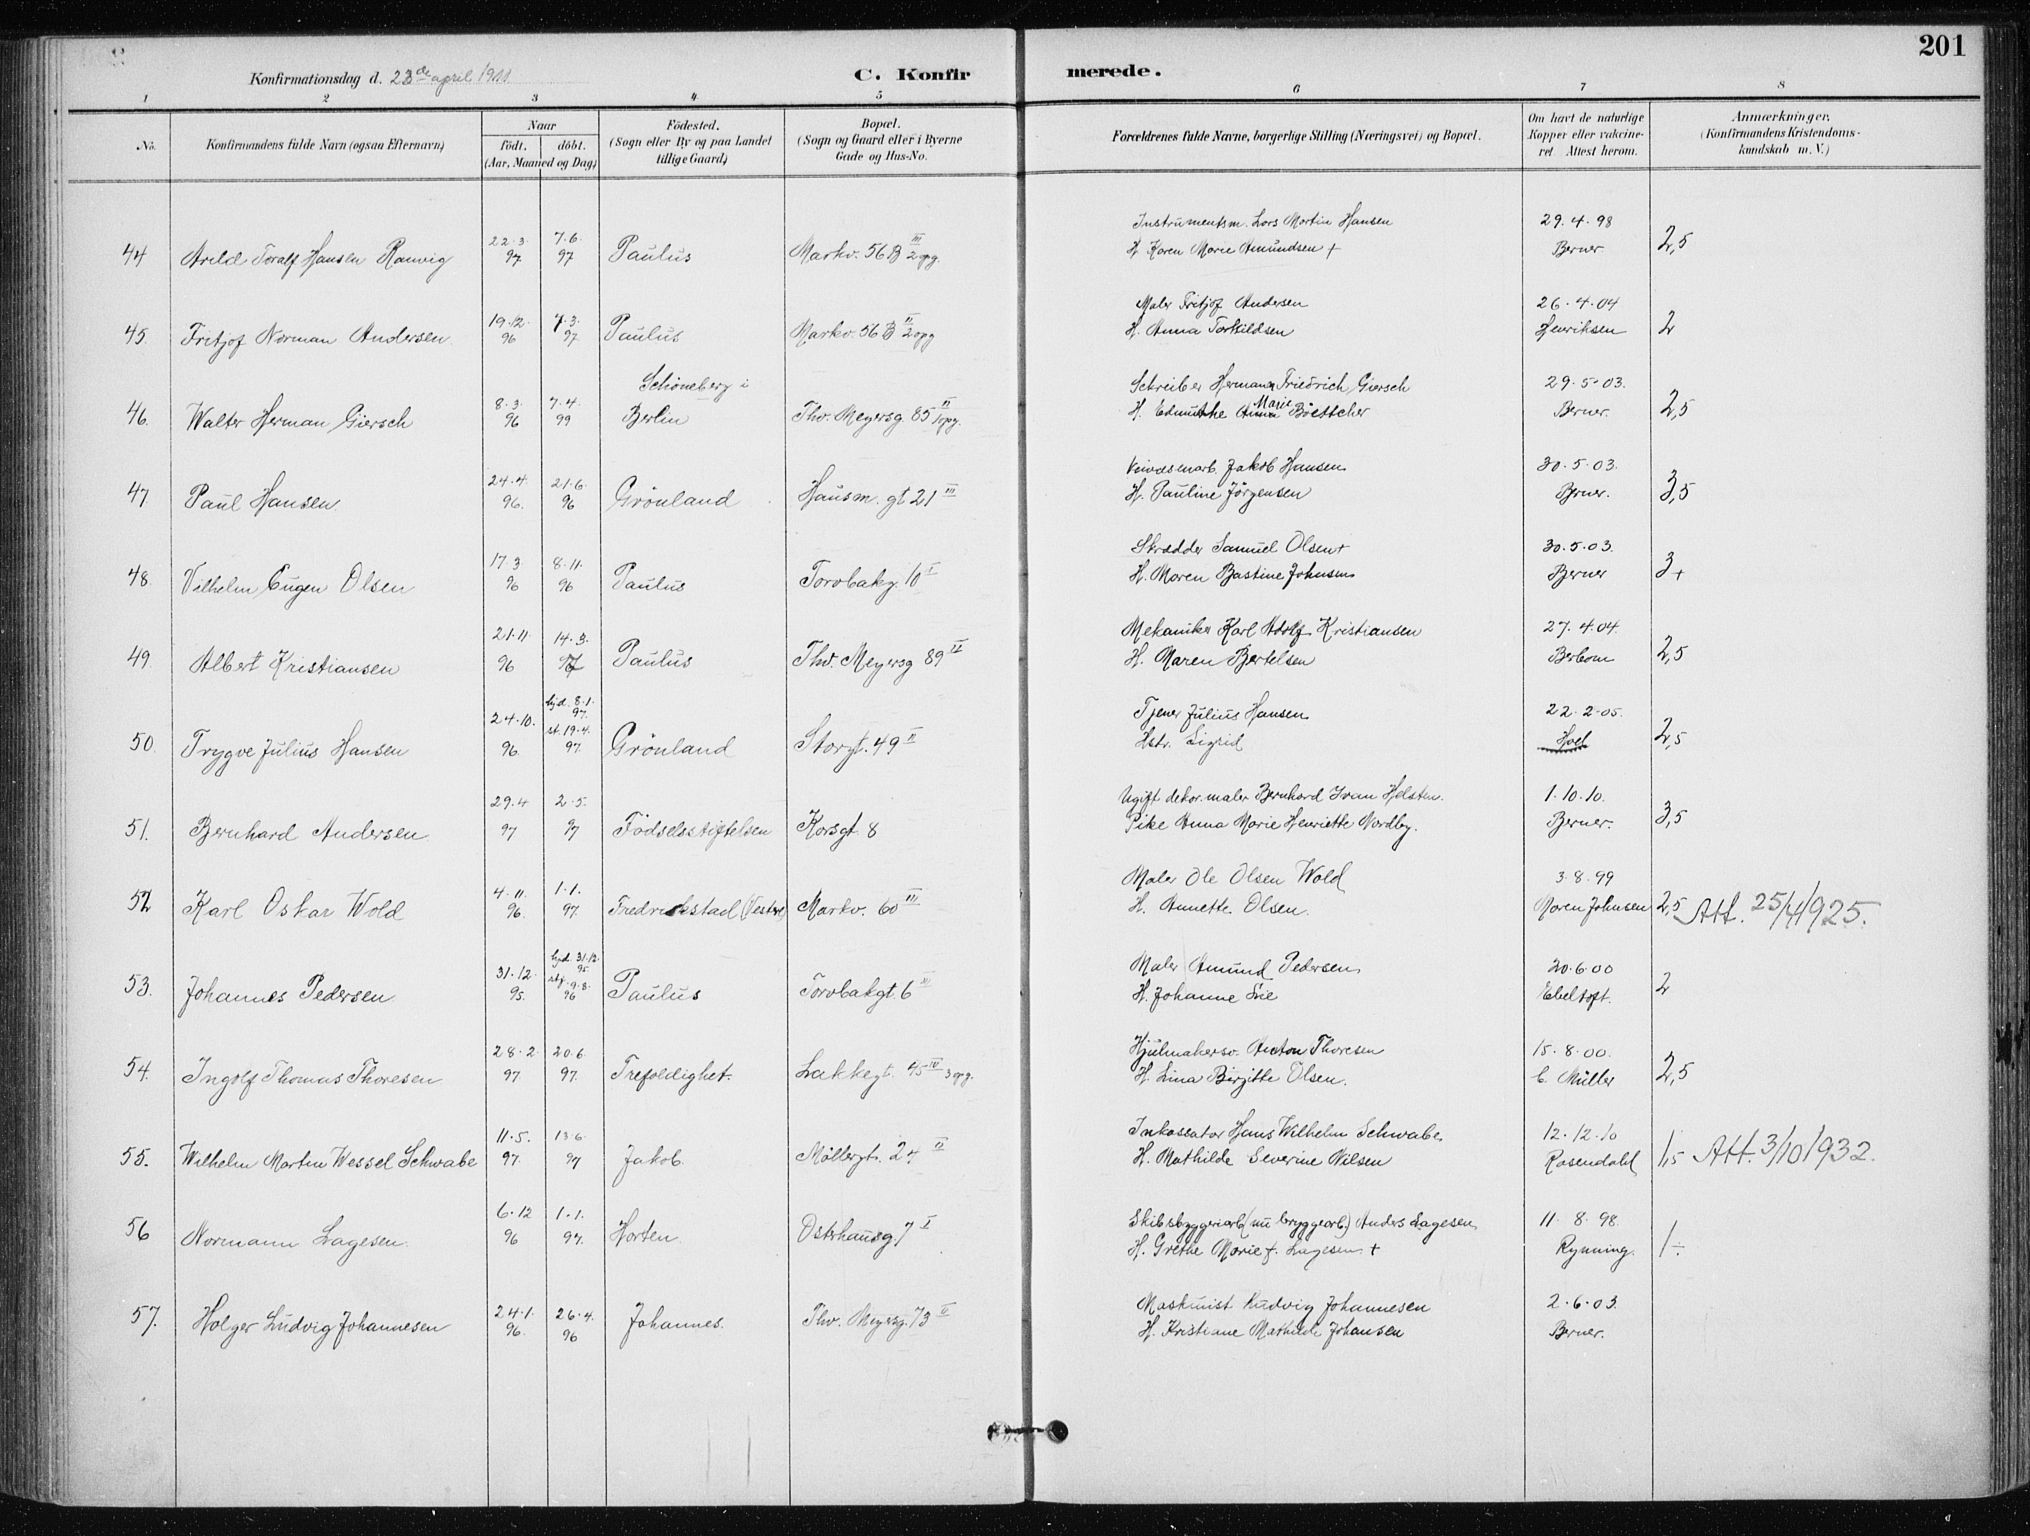 201
Konfirmationsdag d. 23de april 1911
C. Konfirmerede.
1 2 3 4 5 6 7 8
No.
Konfirmandens fulde Navn (ogsaa Efternavn)
Naar
født. døbt.
(Aar, Maaned og Dag)
Fødested.
(Sogn eller By og paa Landet
tillige Gaard)
Bopæl.
(Sogn og Gaard eller i Byerne
Gade og Hus-No.
Forældrenes fulde Navne, borgerlige Stilling (Næringsvei) og Bopæl.
Om havt de naturlige
Kopper eller vakcine-
ret. Attest herom.
Anmærkninger.
(Konfirmandens Kristendoms-
kundskab m. V.)
22.3. 7.6. III Instrumentm. Lars Martin Hansen 29.4.98
44 Arild Toralf Hansen Ranvig 97 97 Paulus Markv. 56 B 2 opg. H. Karen Marie Amundsen + Berner. 2,5
19.12. 7.3. II Maler Fritjof Andersen 26.4.04
45. Fritjof Norman Andersen. 96 97 Paulus Markv. 56 B 2 opg H. Anna Torkildsen Henriksen 2
8.3. 7.4. Schöneberg i II Schreiber Hermann Friedrich Giersch 29.5.03.
46. Walter Herman Giersch 96 99 Berlin Thv. Meyersg. 85 1 opg. H. Edmuthe Anna Marie Böettcher Berner. 2,5
24.4. 21.6. Veivæsenarb. Jakob Hansen 30.5.03.
47. Paul Hansen 96. 96 Grönland Hausm. gt 21 III H. Pauline Jörgensen Berner. 3,5
17.3 8.11. Skrædder Samuel Olsen + 30.5.03.
48. Vilhelm Eugen Olsen 96 96 Paulus Torvbakg. 10 I H. Maren Bastine Johnsen Berner 3+
21.11. 14.3. Mekaniker Karl Adolf Kristiansen 27.4.04.
49. Albert Kristiansen 96 97 Paulus Thv. Meyersg 89 II H. Maren Bertelsen Berbom 2,5
24.10. hjd. 8.1. 97. st. 19.4. Tjener Julius Hansen 22.2.05.
50. Trygve Julius Hansen 96. 97. Grönland Storgt. 49 II Hstr. Sigrid Hoel 2,5
29.4 2.5. Ugift dekor. maler Bernhard Ivan Holsten. 1.10.10.
51. Bernhard Andersen 97 97 Födselsstiftelsen Korsgt. 8 Pike Anna Marie Henriette Nordby. Berner. 3,5
4.11. 1.1. Maler Ole Olsen Wold 3.8.99
52 Karl Oskar Wold 96. 97. Fredrikstad (Vestre) Markv. 60 III H. Annette Olsen. Maren Johnsen 2,5 Att. 25/4 1925.
31.12. hjd. 31.12. 95. stf. 9.8. Maler Amund Pedersen 20.6.00
53. Johannes Pedersen 95. 96 Paulus Torvbakgt. 6 III H. Johanne Lie Ebeltoft. 2
28.2 20.6. Hjulmakersv. Anton Thoresen 15.8.00.
54. Ingolf Thomas Thoresen 97. 97. Trefoldighet. Lakkegt. 45 IV 3 opg. H. Lina Birgitte Olsen. C. Müller 2,5
11.5. 13.6. Inkassator Hans Wilhelm Schwabe. 12.12.10
55. Wilhelm Morten Wessel Schwabe 97. 97 Jakob. Möllergt. 24 II H. Mathilde Severine Nilsen Rosendahl 1,5 Att. 3/10 1932.
6.12 1.1. Skibsbyggeriarb. (nu bryggearb.) Anders Lagesen 11.8.98.
56 Normann Lagesen. 96 97. Horten Osterhausg 7 I H. Grethe Marie f. Lagesen + Rynning. 1÷
24.1. 26.4. Maskinist Ludvig Johannesen 2.6.03.
57. Holger Ludvig Johannesen 96. 96 Johannes. Thv. Meyersg. 73 II H. Kristiane Mathilde Johansen Berner.